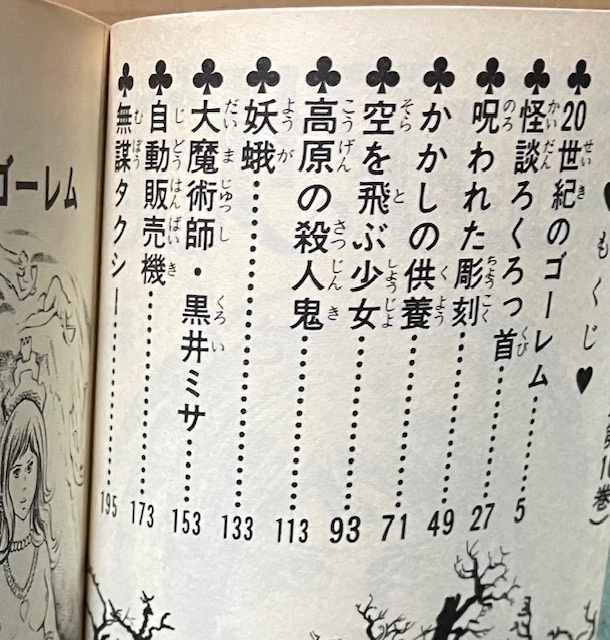 ♥もくじ♥
♣20世紀のゴーレム……5
♣怪談ろくろっ首……27
♣呪われた彫刻……49
♣かかしの供養……71
♣空を飛ぶ少女……93
♣高原の殺人鬼……113
♣妖蛾……133
♣大魔術師・黒井ミサ……153
♣自動販売機……173
♣無謀タクシー……195
ゴーレム